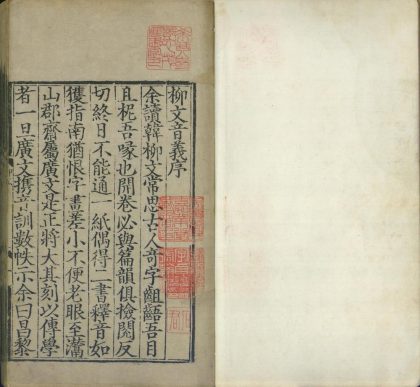 柳文音義序
余讀韓柳文常思古人奇字齟齬吾目
且柅吾喙也開卷必與篇韻俱檢閱反
切終日不能通一紙偶得二書釋音如
獲指南猶恨字畫差小不便老眼至灊
山郡齋屬廣文是正將大其刻以傳學
者一旦廣文携音訓數帙示余曰昌黎